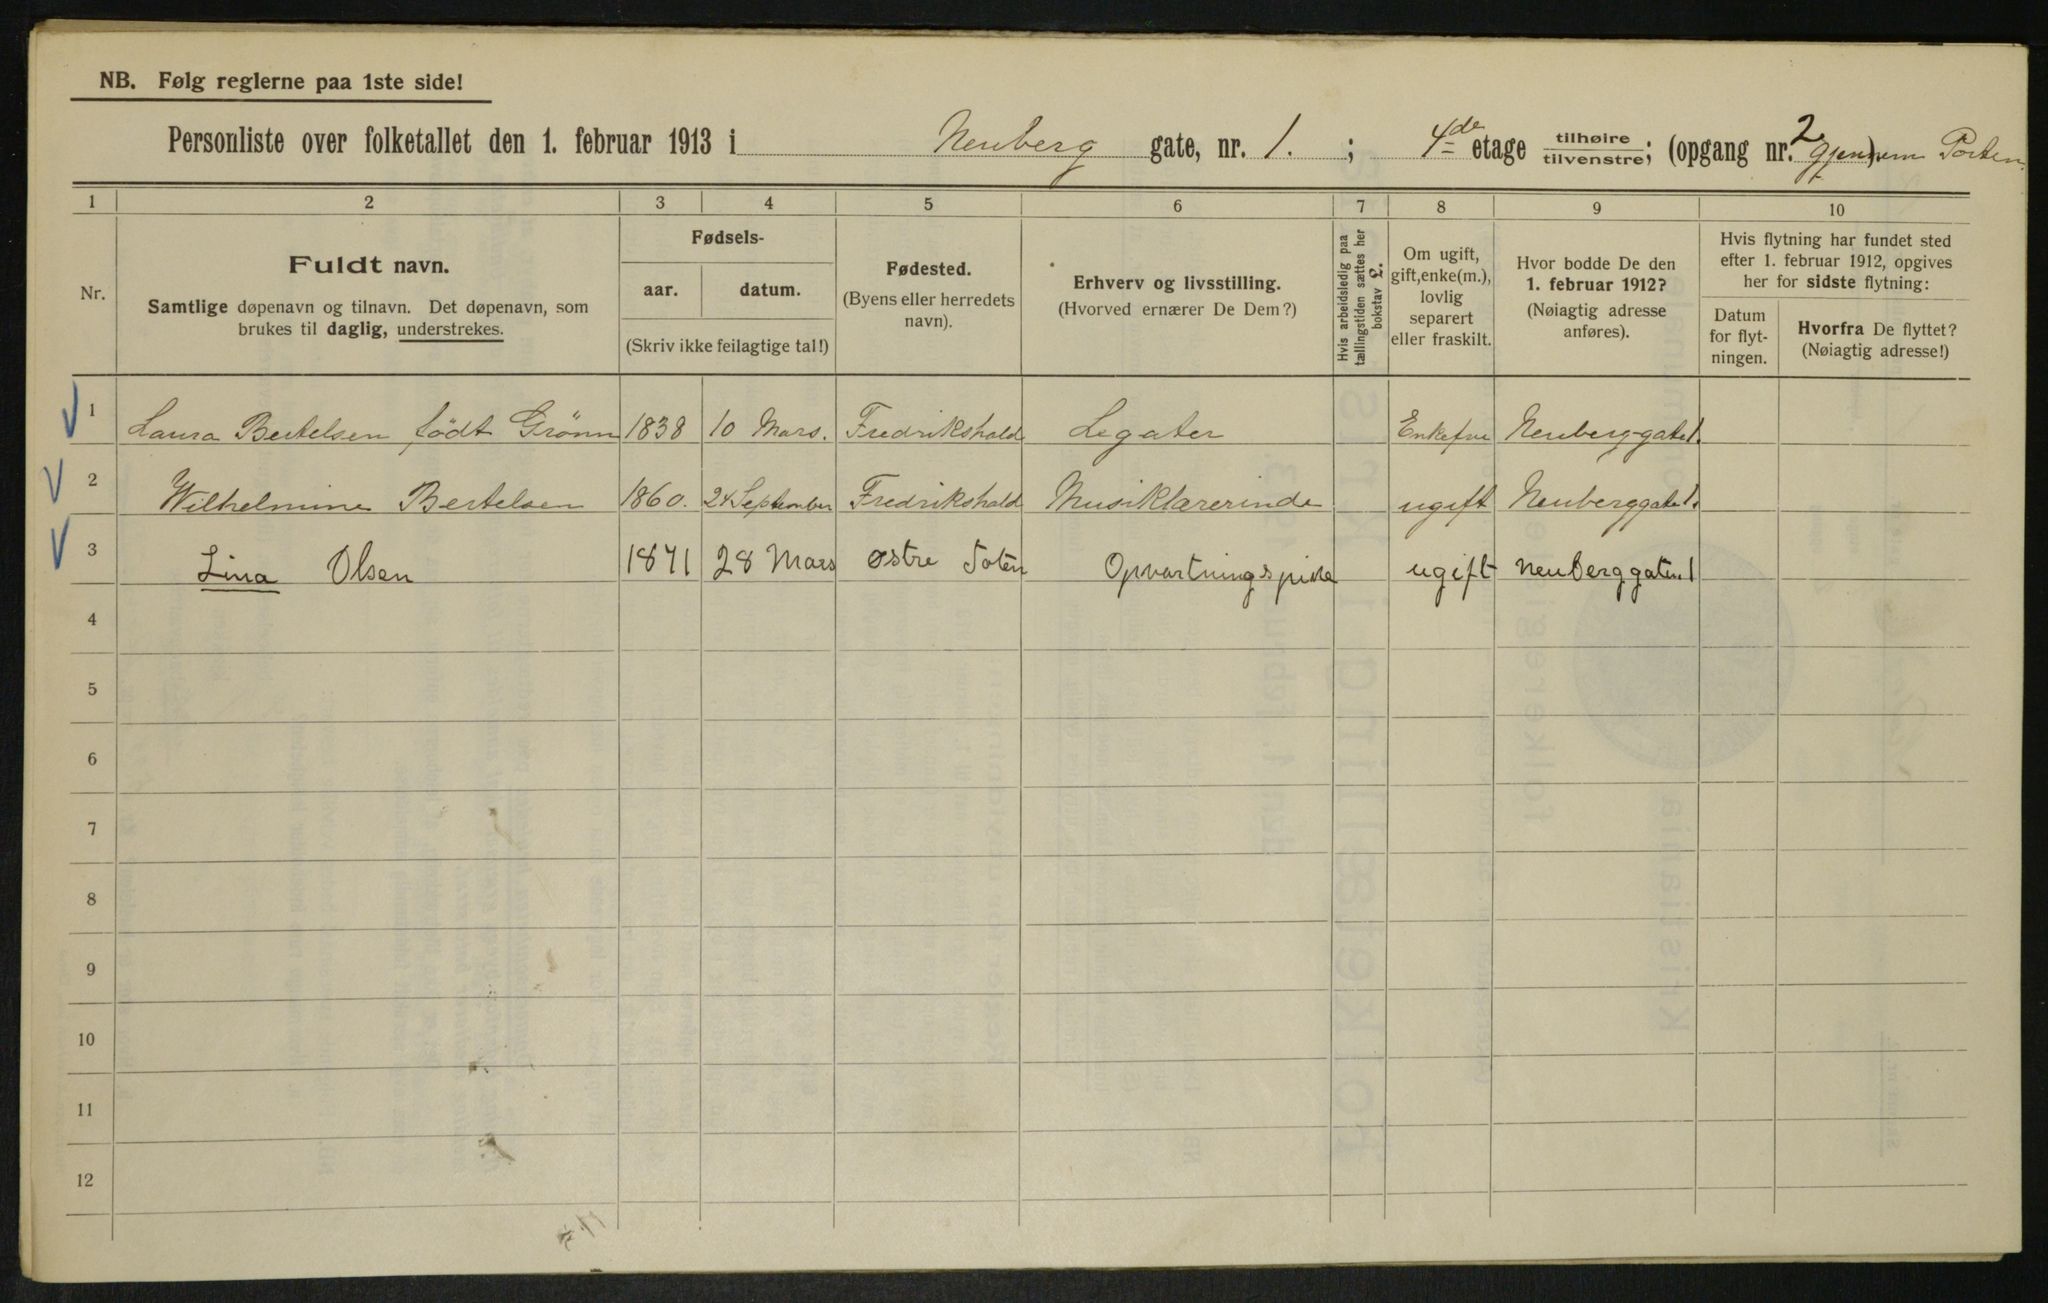 NB. Følg reglerne paa 1ste side!
Personliste over folketallet den 1. februar 1913 i Neuberg gate, nr. 1. ; 4de etage tilhøire tilvenstre; (opgang nr. 2) gjennem Porten.
1 2 3 4 5 6 7 8 9 10
Nr.
Fuldt navn.
Samtlige døpenavn og tilnavn. Det døpenavn, som
brukes til daglig, understrekes.
Fødsels-
aar. datum.
(Skriv ikke feilagtige tal!)
Fødested.
(Byens eller herredets
navn).
Erhverv og livsstilling.
(Hvorved ernærer De Dem?)
Hvis arbeidsledig paa
tællingstiden sættes her
bokstav L.
Om ugift,
gift, enke(m.),
lovlig
separert
eller fraskilt.
Hvor bodde De den
1. februar 1912?
(Nøiagtig adresse
anføres).
Hvis flytning har fundet sted
efter 1. februar 1912, opgives
her for sidste flytning:
Datum
for flyt-
ningen.
Hvorfra De flyttet?
(Nøiagtig adresse!)
1 Laura Bertelsen født Grönn 1838 10 Mars. Fredrikshald Legater Enkefru Neuberg-gate 1.
2 Wilhelmine Bertelsen 1860. 24 September Fredrikshald Musiklærerinde ugift Neuberggate 1.
3 Lina Olsen 1871 28 Mars østre Toten Opvartningspike ugift Neuberggaten 1
4
5
6
7
8
9
10
11
12